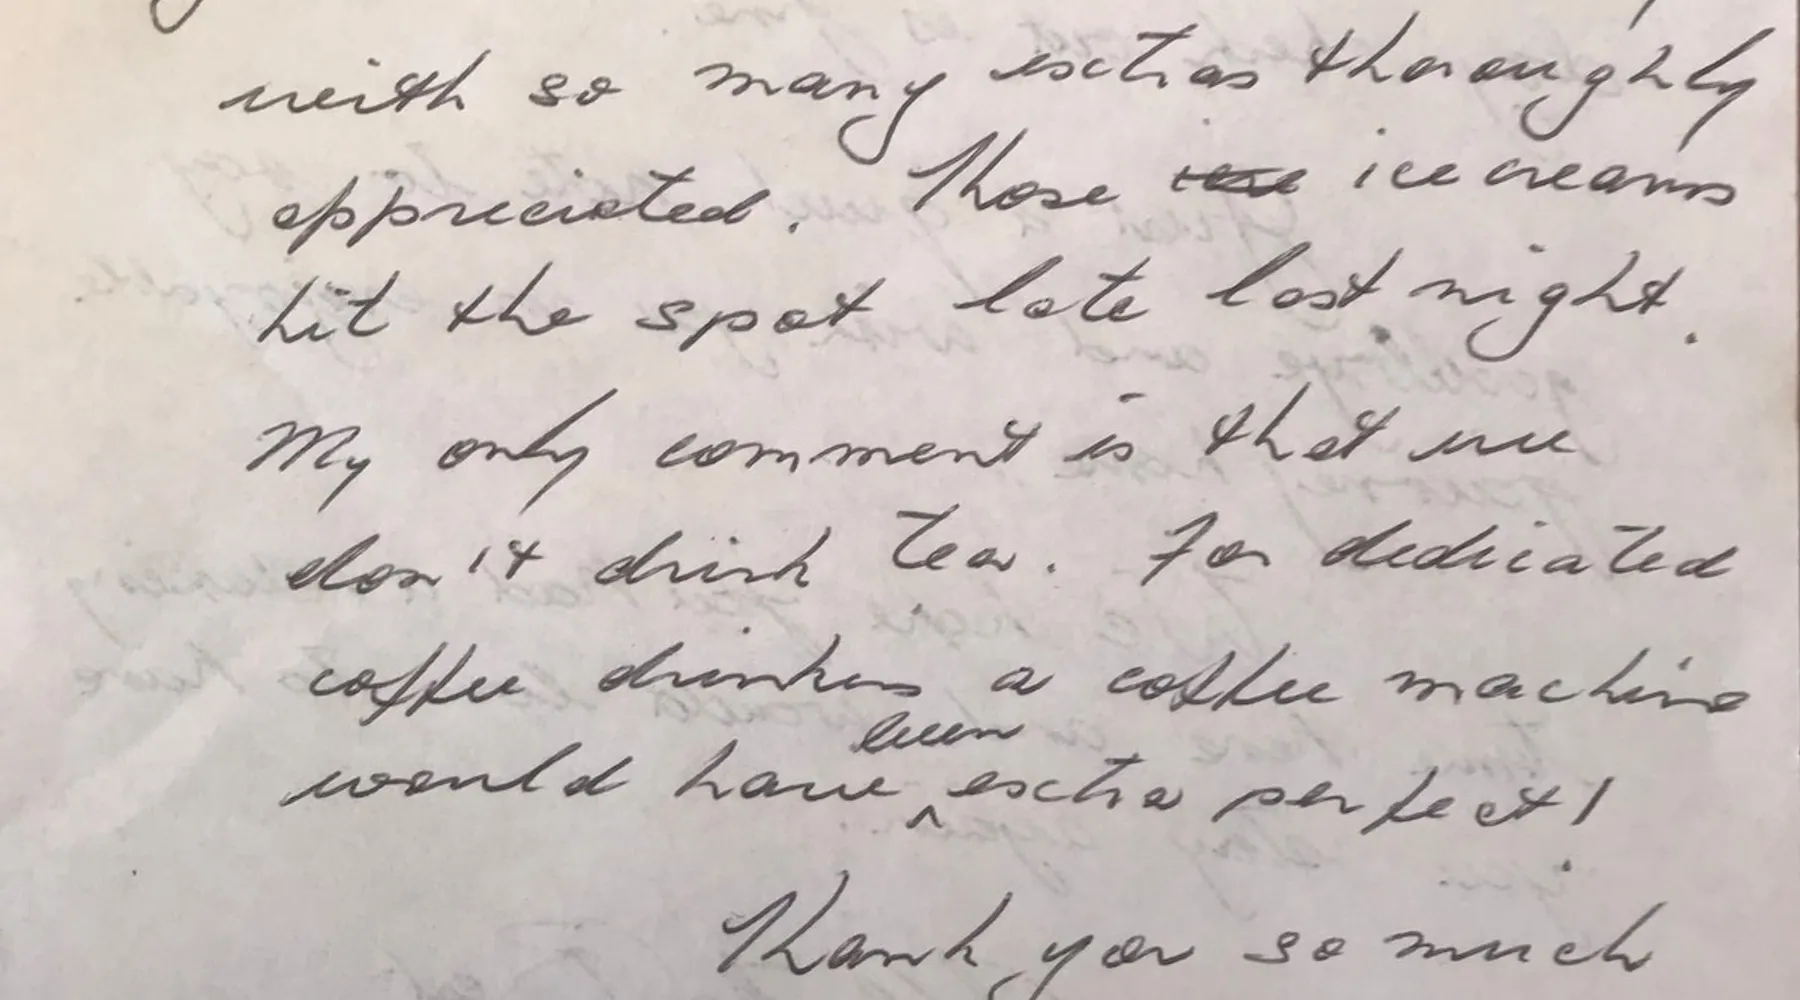 with so many extras thoroughly
appreciated. Those icecreams
hit the spot late last night.
My only comment is that we
don't drink tea. For dedicated
coffee drinkers a coffee machine
would have been extra perfect!
Thank you so much